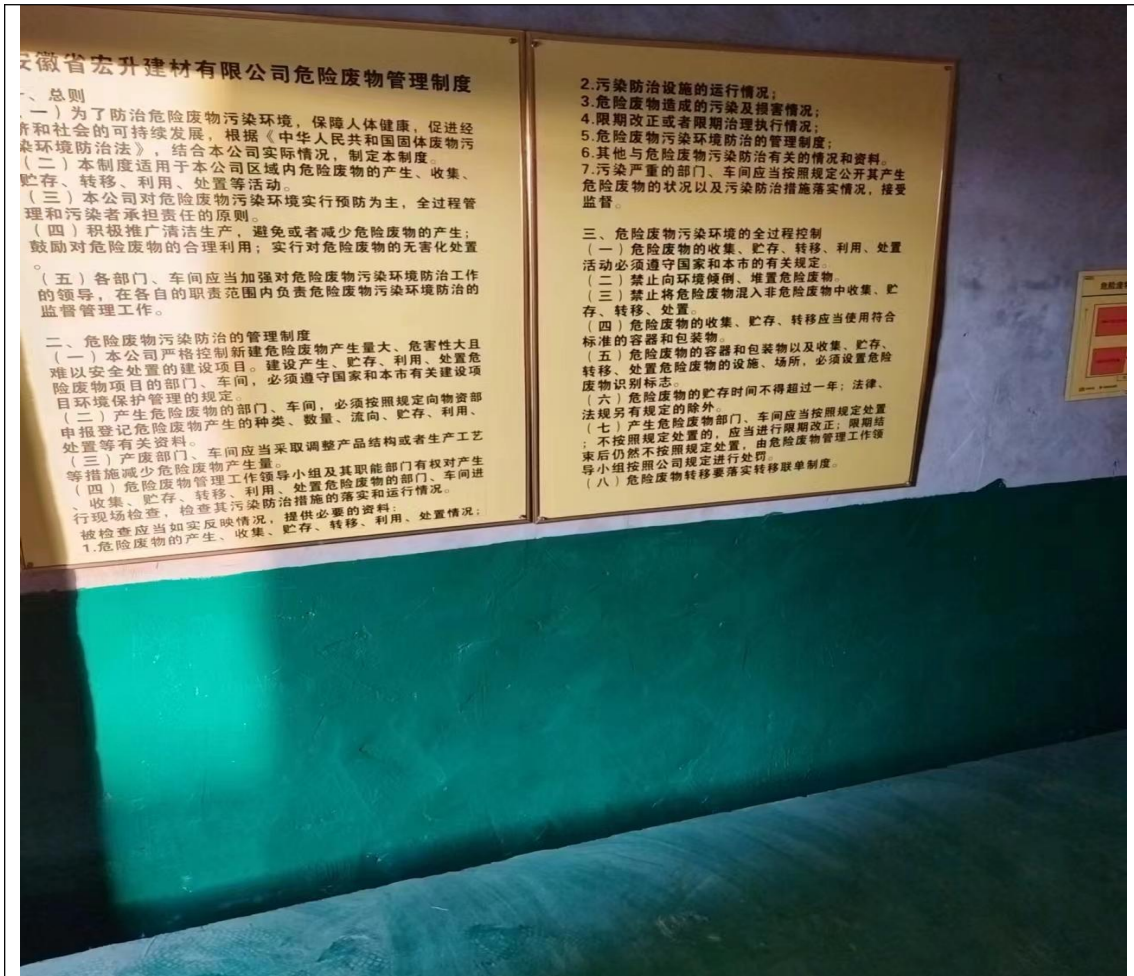 安徽省宏升建材有限公司危险废物管理制度
一、总则
（一）为了防治危险废物污染环境，保障人体健康，促进经
济和社会的可持续发展，根据《中华人民共和国固体废物污
染环境防治法》，结合本公司实际情况，制定本制度。
（二）本制度适用于本公司区域内危险废物的产生、收集、
贮存、转移、利用、处置等活动。
（三）本公司对危险废物污染环境实行预防为主，全过程管
理和污染者承担责任的原则。
（四）积极推广清洁生产，避免或者减少危险废物的产生；
鼓励对危险废物的合理利用；实行对危险废物的无害化处置
。
（五）各部门、车间应当加强对危险废物污染环境防治工作
的领导，在各自的职责范围内负责危险废物污染环境防治的
监督管理工作。
二、危险废物污染防治的管理制度
（一）本公司严格控制新建危险废物产生量大、危害性大且
难以安全处置的建设项目。建设产生、贮存、利用、处置危
险废物项目的部门、车间，必须遵守国家和本市有关建设项
目环境保护管理的规定。
（二）产生危险废物的部门、车间，必须按照规定向物资部
申报登记危险废物产生的种类、数量、流向、贮存、利用、
处置等有关资料。
（三）产废部门、车间应当采取调整产品结构或者生产工艺
等措施减少危险废物产生量。
（四）危险废物管理工作领导小组及其职能部门有权对产生
、收集、贮存、转移、利用、处置危险废物的部门、车间进
行现场检查，检查其污染防治措施的落实和运行情况。
被检查应当如实反映情况，提供必要的资料：
1.危险废物的产生、收集、贮存、转移、利用、处置情况；
2.污染防治设施的运行情况；
3.危险废物造成的污染及损害情况；
4.限期改正或者限期治理执行情况；
5.危险废物污染环境防治的管理制度；
6.其他与危险废物污染防治有关的情况和资料。
7.污染严重的部门、车间应当按照规定公开其产生
危险废物的状况以及污染防治措施落实情况，接受
监督。
三、危险废物污染环境的全过程控制
（一）危险废物的收集、贮存、转移、利用、处置
活动必须遵守国家和本市的有关规定。
（二）禁止向环境倾倒、堆置危险废物。
（三）禁止将危险废物混入非危险废物中收集、贮
存、转移、处置。
（四）危险废物的收集、贮存、转移应当使用符合
标准的容器和包装物。
（五）危险废物的容器和包装物以及收集、贮存、
转移、处置危险废物的设施、场所，必须设置危险
废物识别标志。
（六）危险废物的贮存时间不得超过一年；法律、
法规另有规定的除外。
（七）产生危险废物部门、车间应当按照规定处置
；不按照规定处置的，应当进行限期改正；限期结
束后仍然不按照规定处置，由危险废物管理工作领
导小组按照公司规定进行处罚。
（八）危险废物转移要落实转移联单制度。
危险废